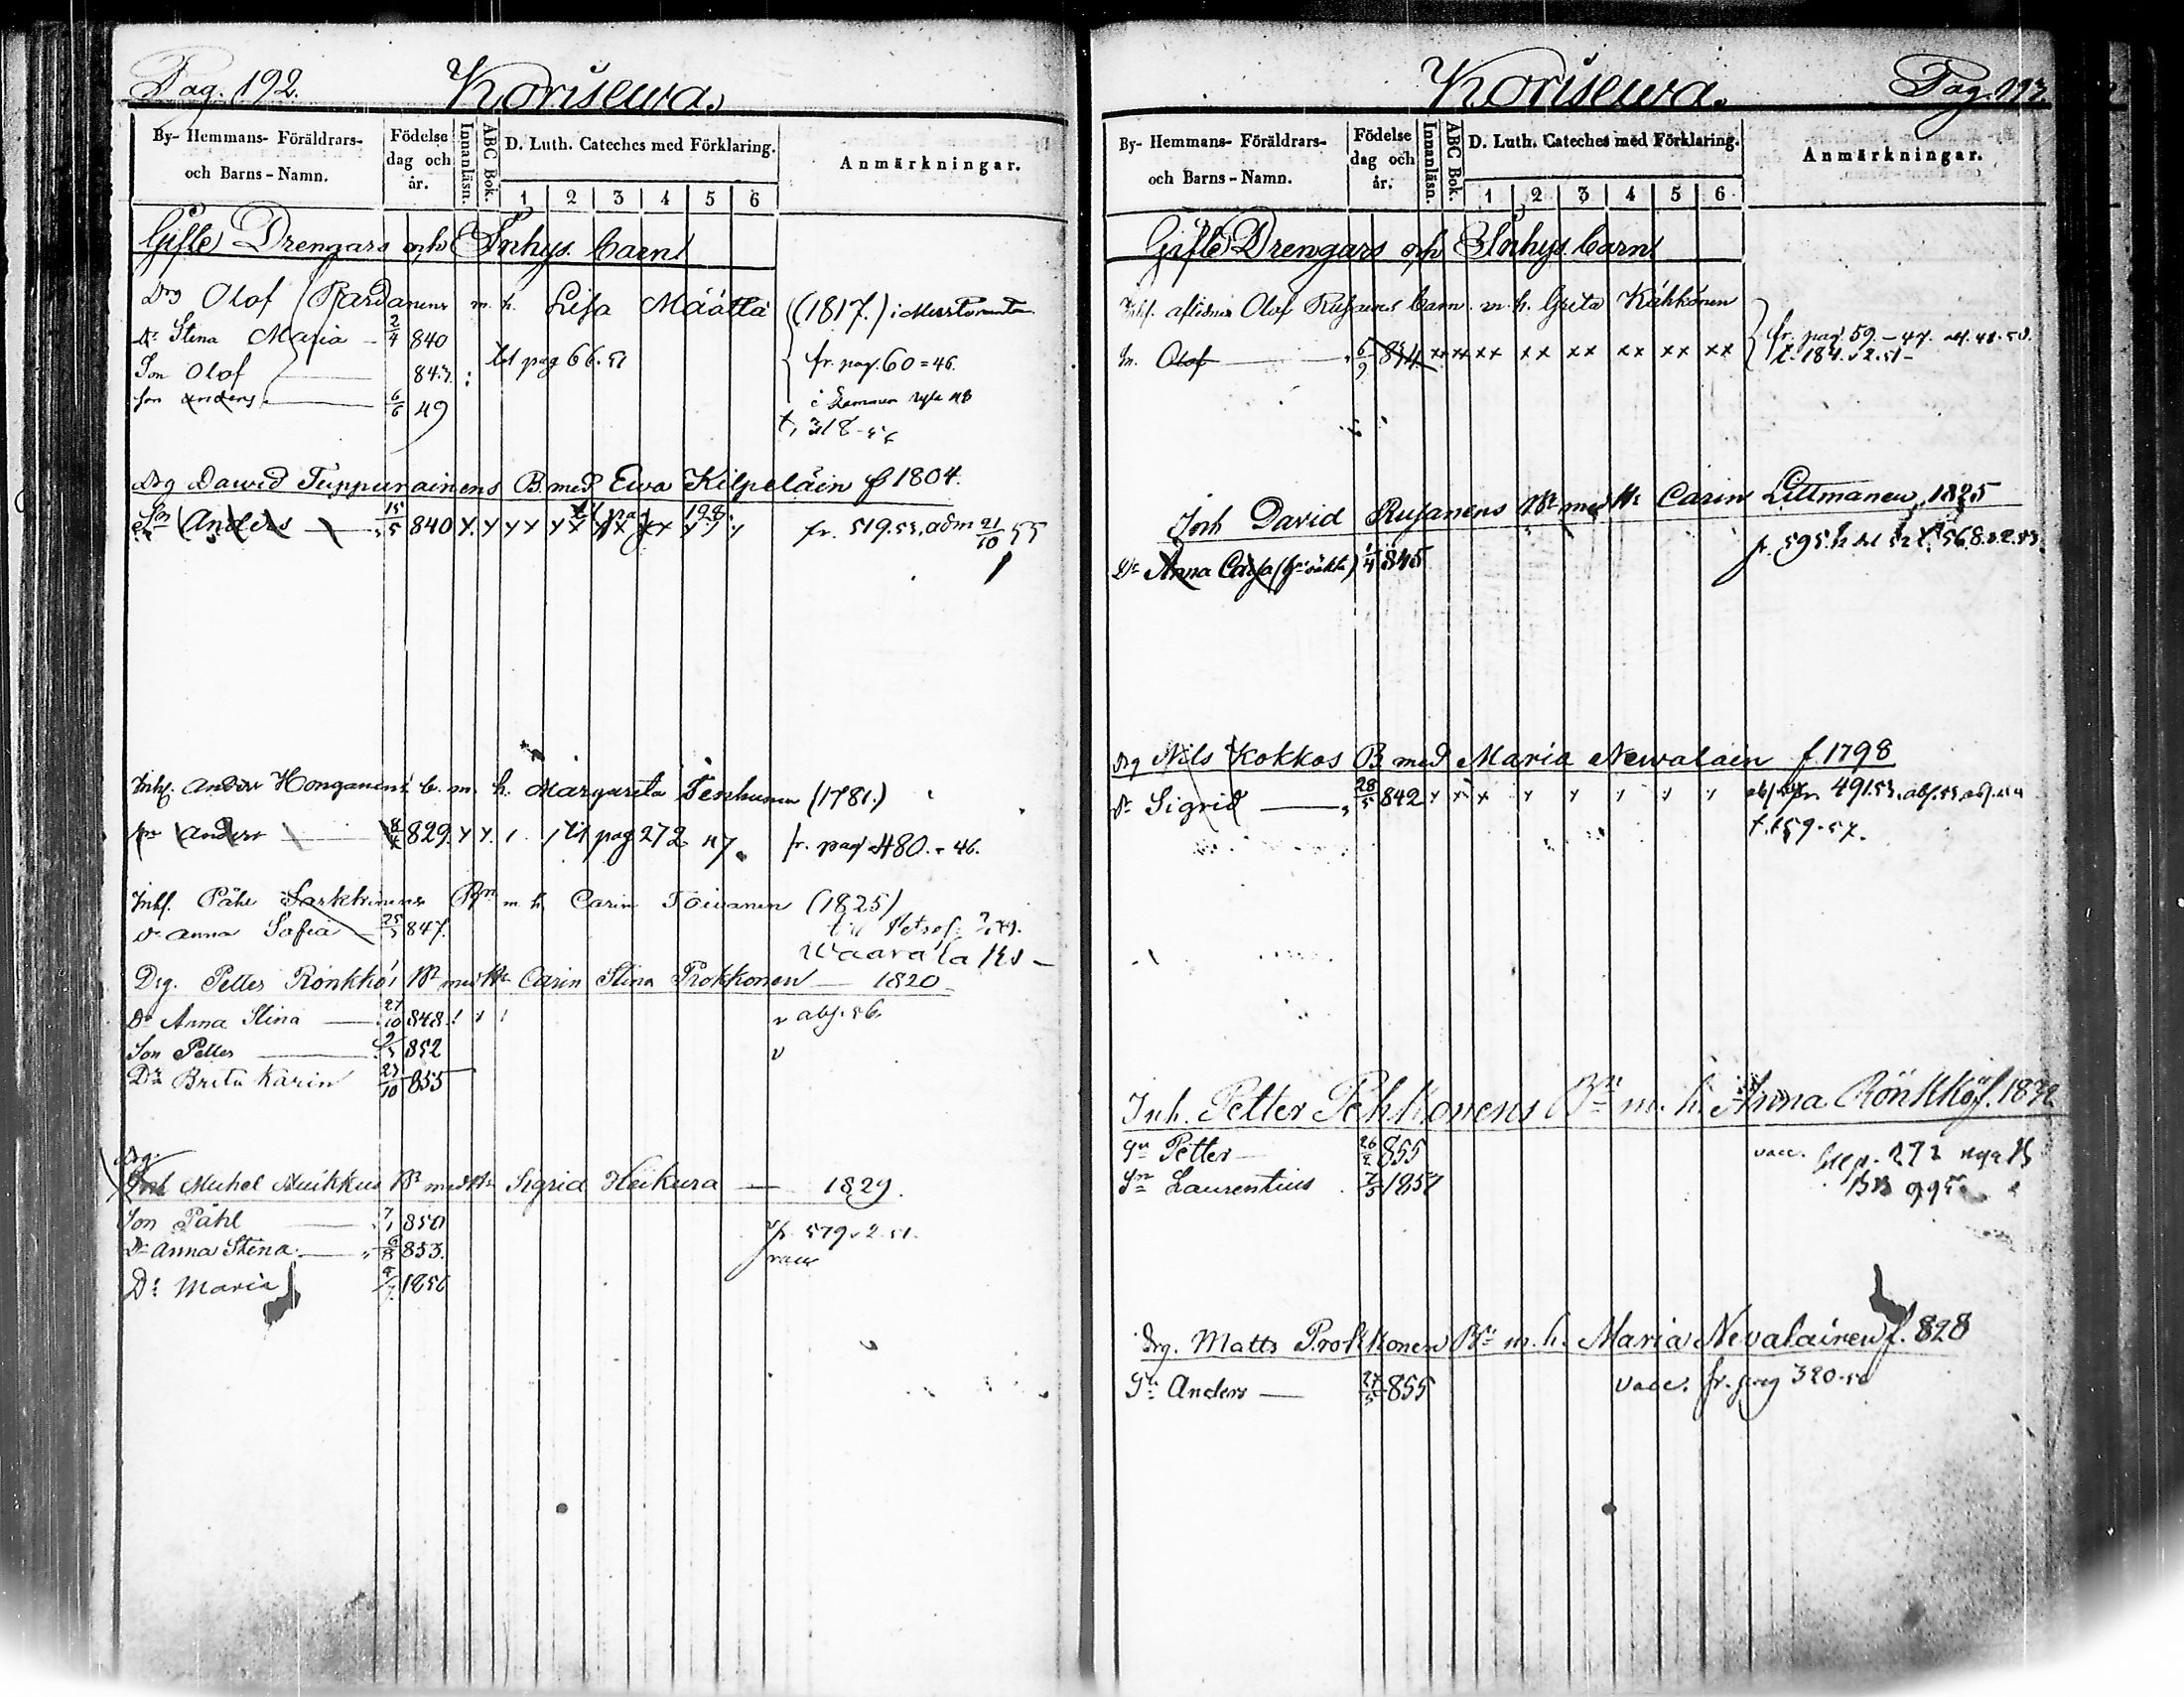 Pag. 192. Korisewa.
By- Hemmans- Föräldrars- och Barns-Namn. Födelse dag och år. Innanläsn. ABC Bok. D. Luth. Cateches med Förklaring. Anmärkningar.
1 2 3 4 5 6
Gifte Drengars och Inhys. barn
Drg Olof Pardanens m. h. Lisa Määttä (1817.)
Dr Stina Maria 2/4 840
Son Olof 843. till pag 66. 51 fr. pag. 60 = 46.
Son Anders 6/6 49
t. 318-56
Drg Dawid Tuppurainens B med Ewa Kilpeläin f 1804.
till pag 198.
Son Anders 15/5 840 x x xx xx xx xx fr. 519.53. adm 21/10 55
Inhs. Anders Honganens b. m. h. Margareta Tenhunen (1781.)
Sn Anders 8/4 829. x x till pag 272 47. fr. pag 480. - 46.
Inhs. Påhl Sarkkinens Bn m h. Carin Toivanen (1825)
Dr Anna Sofia 25/5 847.
Waarala
Drg. Petter Rönkkö Bn med Hu Carin Stina Prokkonen — 1820
Dr Anna Stina 27/10 848. v abs. 56.
Son Petter 9/5 852 v
Dr Brita Karin 23/10 855
Drg.
Inh Michel Muikkus Bn med Hu Sigrid Heikura — 1829.
Son Påhl 7/1 850 fr. 579. 2. 51.
Dr Anna Stina 6/8 853. vacc
Dr Maria 1856
Korisewa. Pag. 193
By- Hemmans- Föräldrars- och Barns-Namn. Födelse dag och år. Innanläsn. ABC Bok. D. Luth. Cateches med Förklaring. Anmärkningar.
1 2 3 4 5 6
Gifte Drengars och Inhys. barn
Inhs. aflidne Olof Rusanens barn m. h. Greta Kähkönen
Sn. Olof 6/9 834 xx xx xx xx xx xx xx fr. pag. 59. - 47.
t. 184. 2. 51-
Inh David Rusanens Bn med Hu Carin Littmanen, 1825
Dr Anna Cajsa (för äkta) 1/4 845 fr. 595. t. 568. 2. 53.
Drg Nils Kokkos B med Maria Newalain f. 1798
Dr Sigrid 28/5 842 x x x x x x x x fr. 491.53.
t. 159-57.
Inh. Petter Pehkonens Bn m. h. Anna Rönkkö f.
Sn Petter 26/2 855 vacc.
Sn Laurentius 7/5 1857
Drg. Matts Prokkonen Bn m. h. Maria Nevalainen f. 828
Sn Anders 27/5 855 vacc. fr. pag 320-56